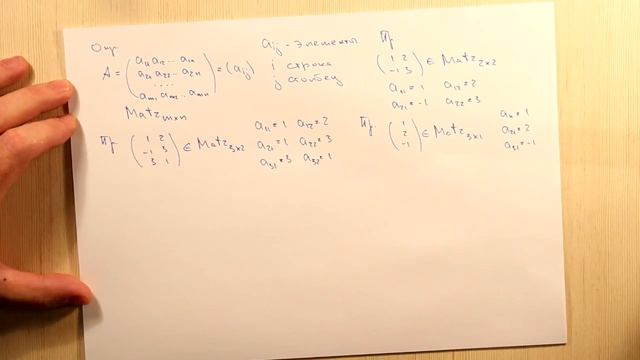 Опр
A = ( a11 a12 ... a1n
a21 a22 ... a2n
....
am1 am2 ... amn ) = (aij)
Matzmxn
aij - элементы
i строка
j столбец
Пр.
( 1 2
-1 3 ) ∈ Matz2x2
a11 = 1 a12 = 2
a21 = -1 a22 = 3
Пр.
( 1 2
-1 3
3 1 ) ∈ Matz3x2
a11 = 1 a12 = 2
a21 = 1 a22 = 3
a31 = 3 a32 = 1
Пр.
( 1
2
-1 ) ∈ Matz3x1
a11 = 1
a21 = 2
a31 = -1